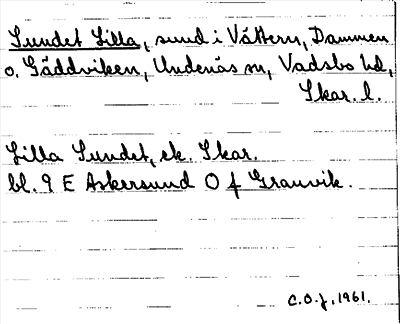 Sundet Lilla, sund i Vättern, Dammen
o. Gäddviken, Undenäs sn, Vadsbo hd,
Skar. l.
Lilla Sundet, ek. Skar.
bl. 9 E Askersund O f Granvik.
C.O.J., 1961.